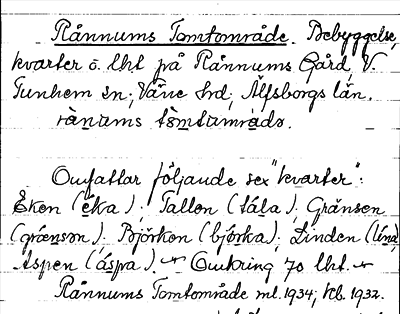 Rånnums Tomtområde. Bebyggelse,
kvarter o. lht på Rånnums Gård, V.
Tunhem sn; Väne hd; Älfsborgs län.
rànums tòmtamrådo.
Omfattar följande sex "kvarter":
Eken (éka); Tallen (tála); Gränsen
(grænson). Björken (bjórka); Linden (lína)
Aspen (áspa). Omkring 70 lht.
Rånnums Tomtområde ml. 1934; kb. 1932.